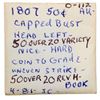 1807 50¢ O-112
CAPPED BUST
HEAD LEFT
50 OVER 20 VARIETY
NICE - HARD
COIN TO GRADE -
UNEVEN STRIKE -
50 OVER 20 REV.
BOOK